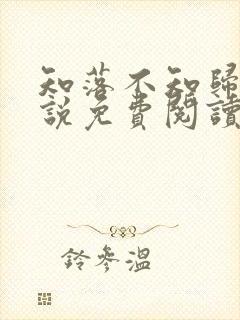 知落不知歸
說免費閱讀
鈴參溫